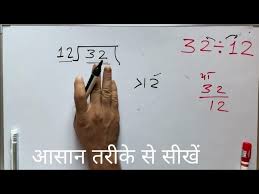 12)32(
32÷12
या
32
12
आसान तरीके से सीखें